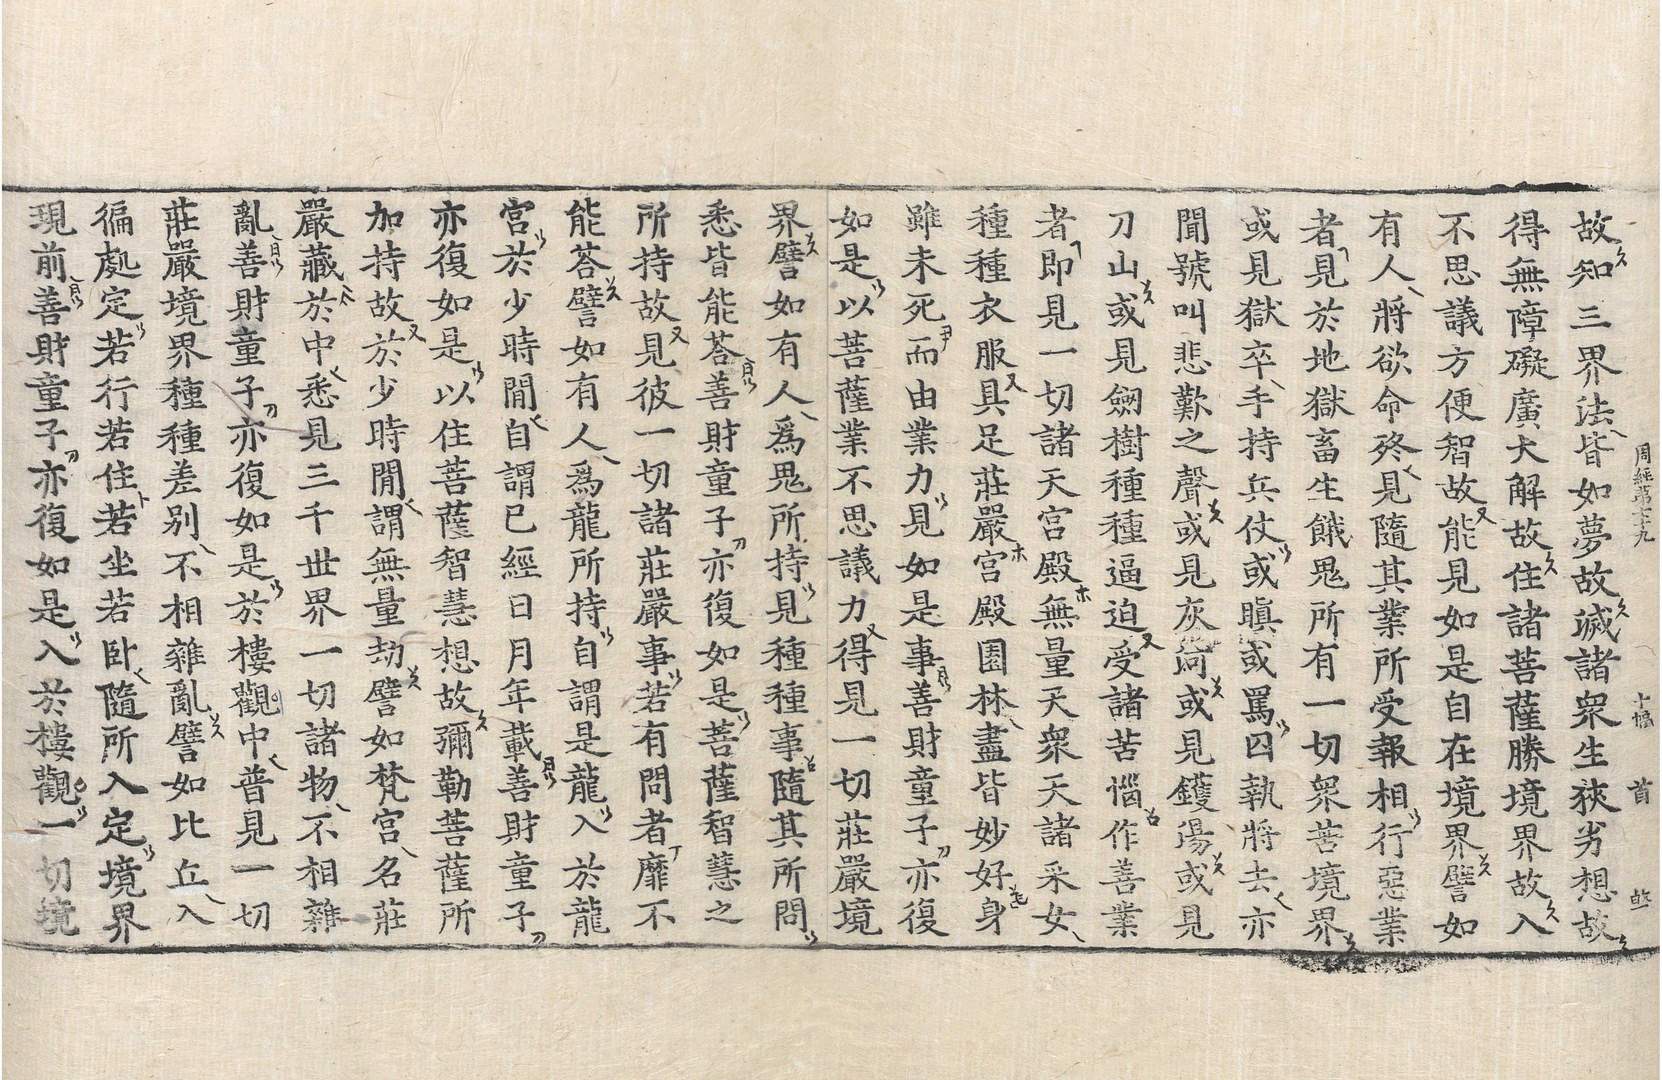 周經第七十九 十幅 首
故知三界法皆如夢故滅諸衆生狹劣想故
得無障礙廣大解故住諸菩薩勝境界故入
不思議方便智故能見如是自在境界譬如
有人將欲命終見隨其業所受報相行惡業
者見於地獄畜生餓鬼所有一切衆苦境界
或見獄卒手持兵仗或瞋或罵囚執將去亦
聞號叫悲歎之聲或見灰河或見鑊湯或見
刀山或見劒樹種種逼迫受諸苦惱作善業
者即見一切諸天宮殿無量天衆天諸采女
種種衣服具足莊嚴宮殿園林盡皆妙好身
雖未死而由業力見如是事善財童子亦復
如是以菩薩業不思議力得見一切莊嚴境
界譬如有人爲鬼所持見種種事隨其所問
悉皆能荅善財童子亦復如是菩薩智慧之
所持故見彼一切諸莊嚴事若有問者靡不
能荅譬如有人爲龍所持自謂是龍入於龍
宮於少時閒自謂已經日月年載善財童子
亦復如是以住菩薩智慧想故彌勒菩薩所
加持故於少時閒謂無量劫譬如梵宮名莊
嚴藏於中悉見三千世界一切諸物不相雜
亂善財童子亦復如是於樓觀中普見一切
莊嚴境界種種差別不相雜亂譬如比丘入
徧處定若行若住若坐若卧隨所入定境界
現前善財童子亦復如是入於樓觀一切境